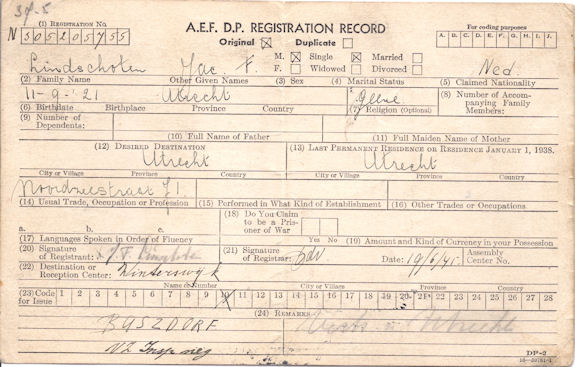 37-5
(1) REGISTRATION NO.
A.E.F. D.P. REGISTRATION RECORD
For coding purposes
N 305205755
Original ☒ Duplicate ☐
A. B. C. D. E. F. G. H. I. J.
M. ☒ Single ☒ Married ☐
Lindschoten Jac. F. F. ☐ Widowed ☐ Divorced ☐ Ned
(2) Family Name Other Given Names (3) Sex (4) Marital Status (5) Claimed Nationality
11-9-'21 Utrecht
(6) Birthdate Birthplace Province Country (7) Religion (Optional) (8) Number of Accompanying Family Members:
(9) Number of Dependents:
(10) Full Name of Father (11) Full Maiden Name of Mother
(12) DESIRED DESTINATION (13) LAST PERMANENT RESIDENCE OR RESIDENCE JANUARY 1, 1938.
Utrecht Utrecht
City or Village Province Country City or Village Province Country
(14) Usual Trade, Occupation or Profession (15) Performed in What Kind of Establishment (16) Other Trades or Occupations
(18) Do You Claim to be a Prisoner of War
a. b. c. Yes No
(17) Languages Spoken in Order of Fluency (19) Amount and Kind of Currency in your Possession
(20) Signature of Registrant: (21) Signature of Registrar: Date: 19/6/45. Assembly Center No.
(22) Destination or Reception Center: Winterswijk
Name or Number City or Village Province Country
(23) Code for Issue 1 2 3 4 5 6 7 8 9 10 11 12 13 14 15 16 17 18 19 20 21 22 23 24 25 26 27 28
(24) REMARKS
BUSZDORF Utrecht
DP-2